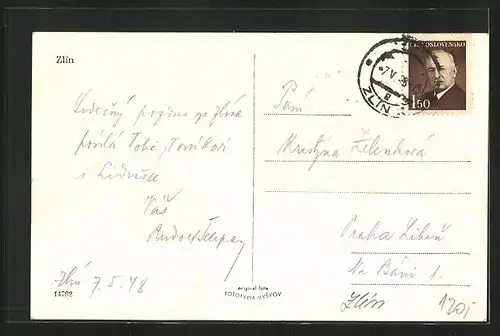 Zlín
Srdečný pozdrav ze Zlína
posílá Tobě, Toníkovi
i Lidušce
Váš
Rudolf
Zlín 7.5.48
14792
original foto
FOTOFEMA-VYŠKOV
ČESKOSLOVENSKO
1.50
7 V
ZLÍN
8
Paní
Kristýna Zelenková
Praha Libeň
Na Báni 1.
120,-